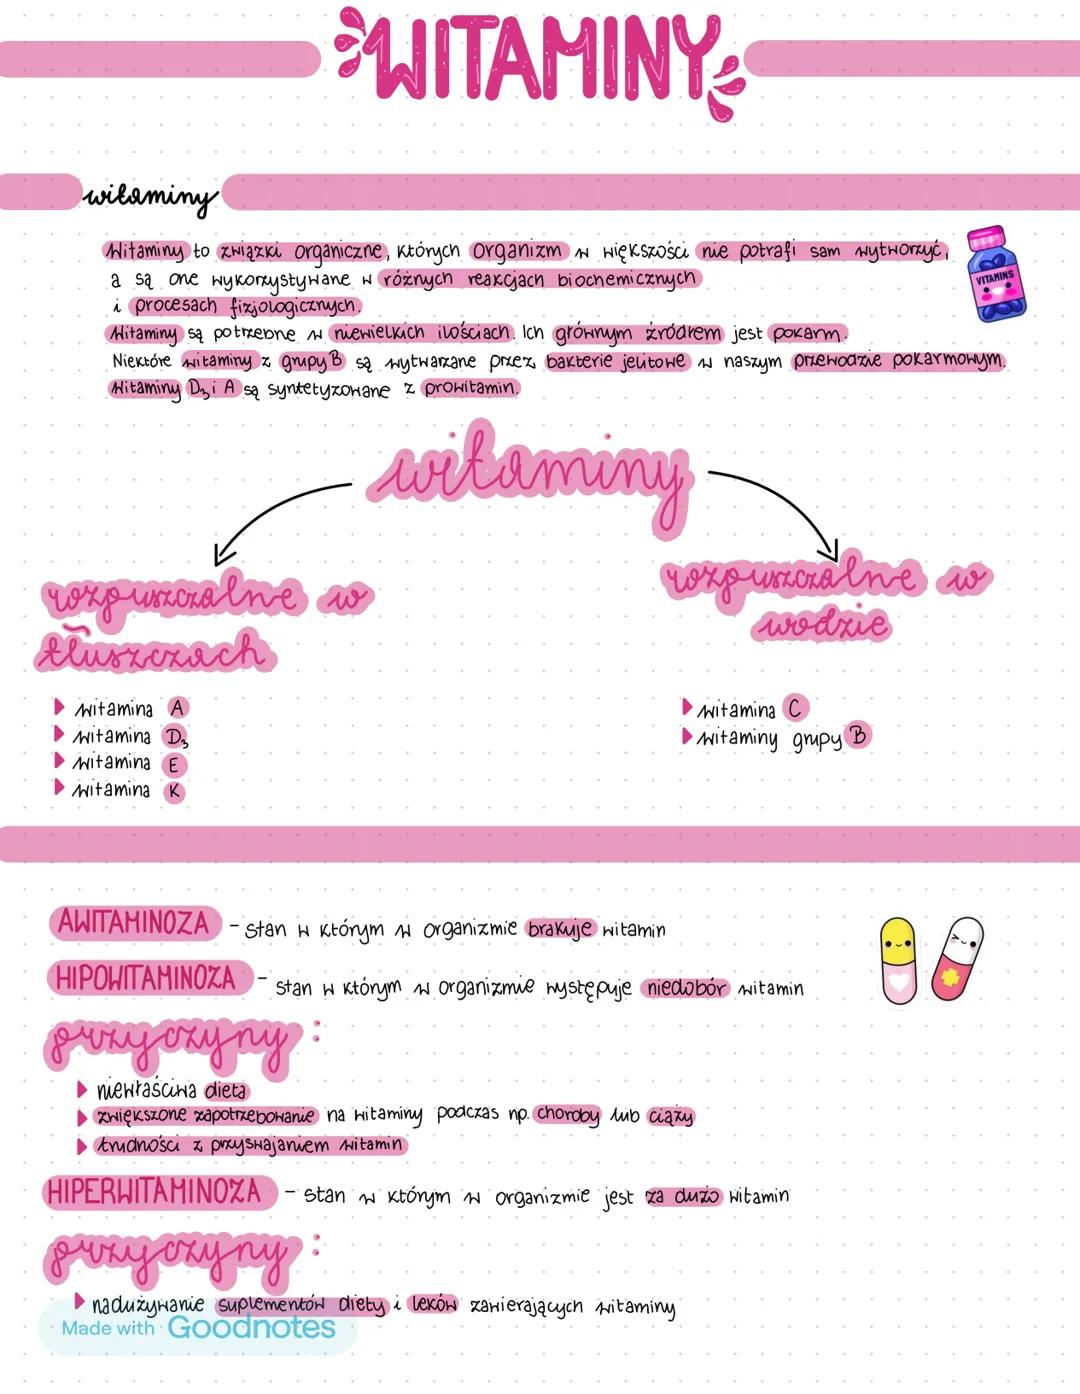 WITAMINY
witaminy
Witaminy to związki organiczne, których organizm w większości nie potrafi sam wytworzyć,
a są one wykorzystywane w różnych reakcjach biochemicznych
i procesach fizjologicznych.
Witaminy są potrzebne w niewielkich ilościach. Ich głównym źródłem jest pokarm.
Niektóre witaminy z grupy B są wytwarzane przez bakterie jelitowe w naszym przewodzie pokarmowym.
Witaminy D₃ i A są syntetyzowane z prowitamin.
VITAMINS
witaminy
rozpuszczalne w
tłuszczach
witamina A
witamina D₃
witamina E
witamina K
rozpuszczalne w
wodzie
witamina C
witaminy grupy B
AWITAMINOZA - stan w którym w organizmie brakuje witamin
HIPOWITAMINOZA - stan w którym w organizmie występuje niedobór witamin
przyczyny:
niewłaściwa dieta
zwiększone zapotrzebowanie na witaminy podczas np. choroby lub ciąży
trudności z przyswajaniem witamin
HIPERWITAMINOZA - stan w którym w organizmie jest za dużo witamin
przyczyny:
nadużywanie suplementów diety i leków zawierających witaminy
Made with Goodnotes